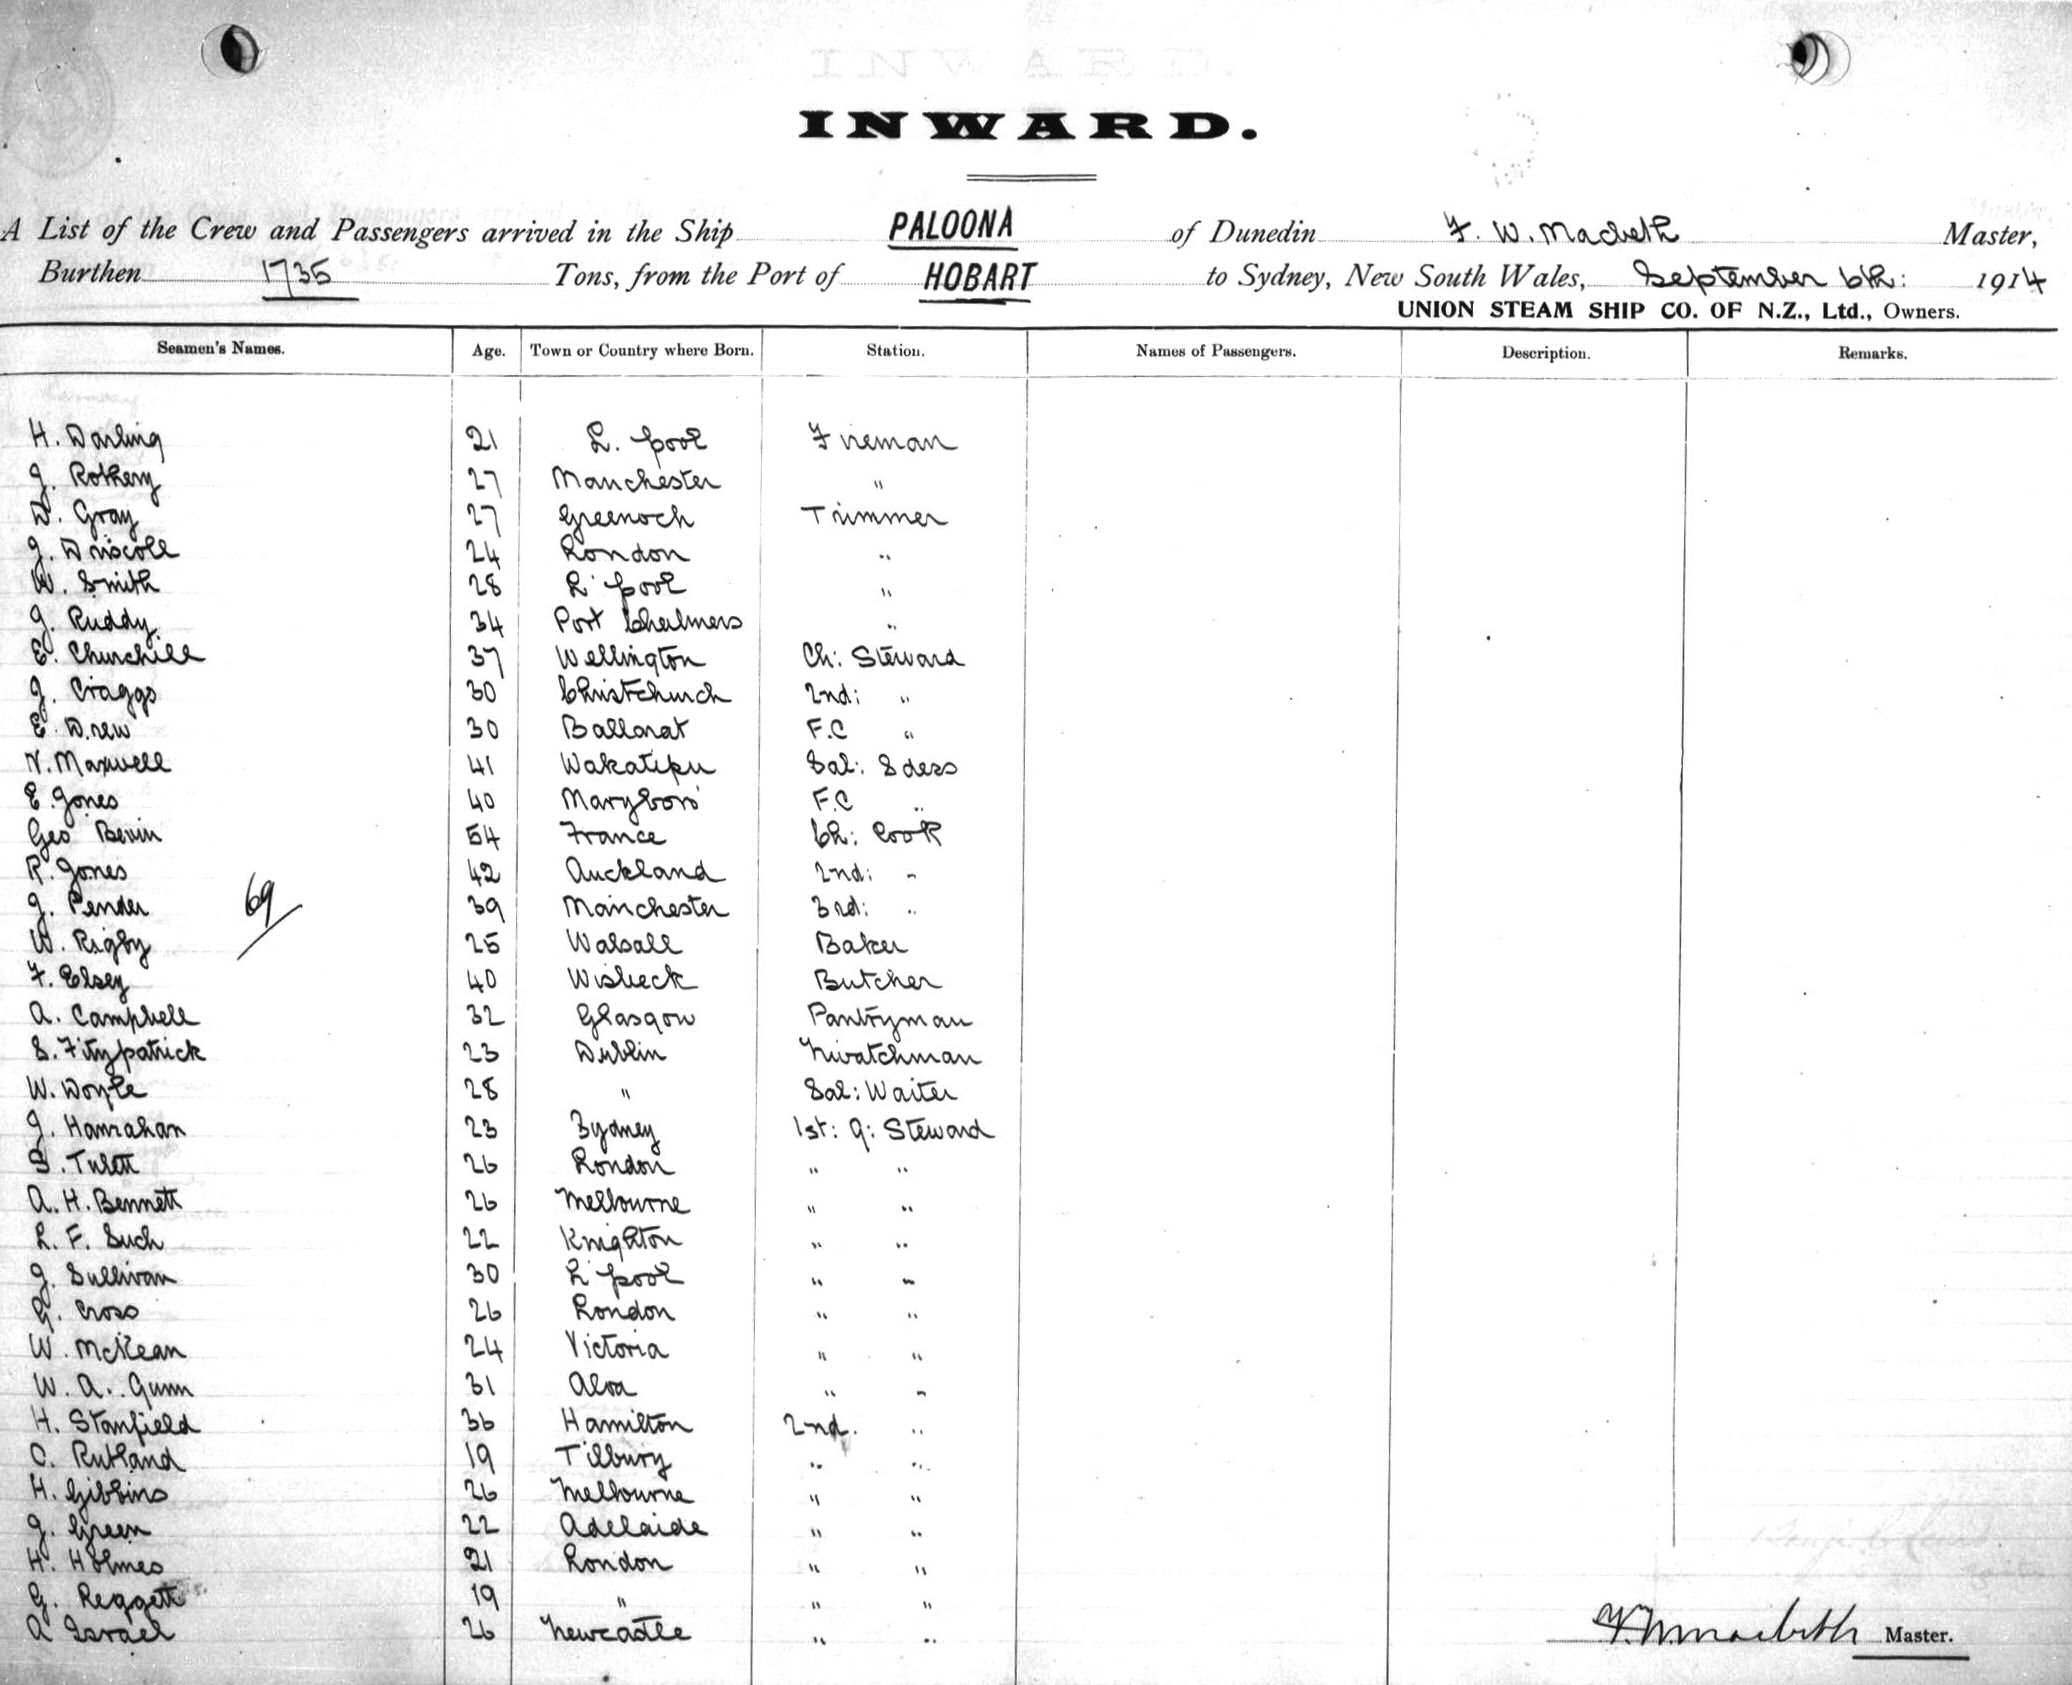 INWARD.
A List of the Crew and Passengers arrived in the Ship PALOONA of Dunedin F. W. Macbeth Master,
Burthen 1735 Tons, from the Port of HOBART to Sydney, New South Wales, September 6th: 1914
UNION STEAM SHIP CO. OF N.Z., Ltd., Owners.
Seamen's Names. Age. Town or Country where Born. Station. Names of Passengers. Description. Remarks.
H. Darling 21 L. pool Fireman
J. Rothery 27 Manchester "
D. Gray 27 Greenock Trimmer
J. Driscoll 24 London "
W. Smith 28 L'pool "
J. Ruddy 34 Port Chalmers "
E. Churchill 37 Wellington Ch: Steward
J. Craggs 30 Christchurch 2nd: "
E. Drew 30 Ballarat F.C "
N. Maxwell 41 Wakatipu Sal: Sdess
E. Jones 40 Maryboro' F.C "
Geo Bevin 54 France Ch: Cook
R. Jones 42 Auckland 2nd: "
J. Pender 39 Manchester 3rd: "
69
W. Rigby 25 Walsall Baker
F. Elsey 40 Wisbeck Butcher
A. Campbell 32 Glasgow Pantryman
S. Fitzpatrick 23 Dublin Nwatchman
W. Doyle 28 " Sal: Waiter
J. Hanrahan 23 Sydney 1st: G: Steward
S. Tulett 26 London " "
A. H. Bennett 26 Melbourne " "
L. F. Such 22 Knighton " "
J. Sullivan 30 L'pool " "
G. Cross 26 London " "
W. McKean 24 Victoria " "
W. A. Gunn 31 Alva " "
H. Stanfield 36 Hamilton 2nd. "
C. Rutland 19 Tilbury " "
H. Gibbins 26 Melbourne " "
J. Green 22 Adelaide " "
H. Holmes 21 London " "
G. Reggett 19 " " "
A Israel 26 Newcastle " "
F. W. Macbeth Master.